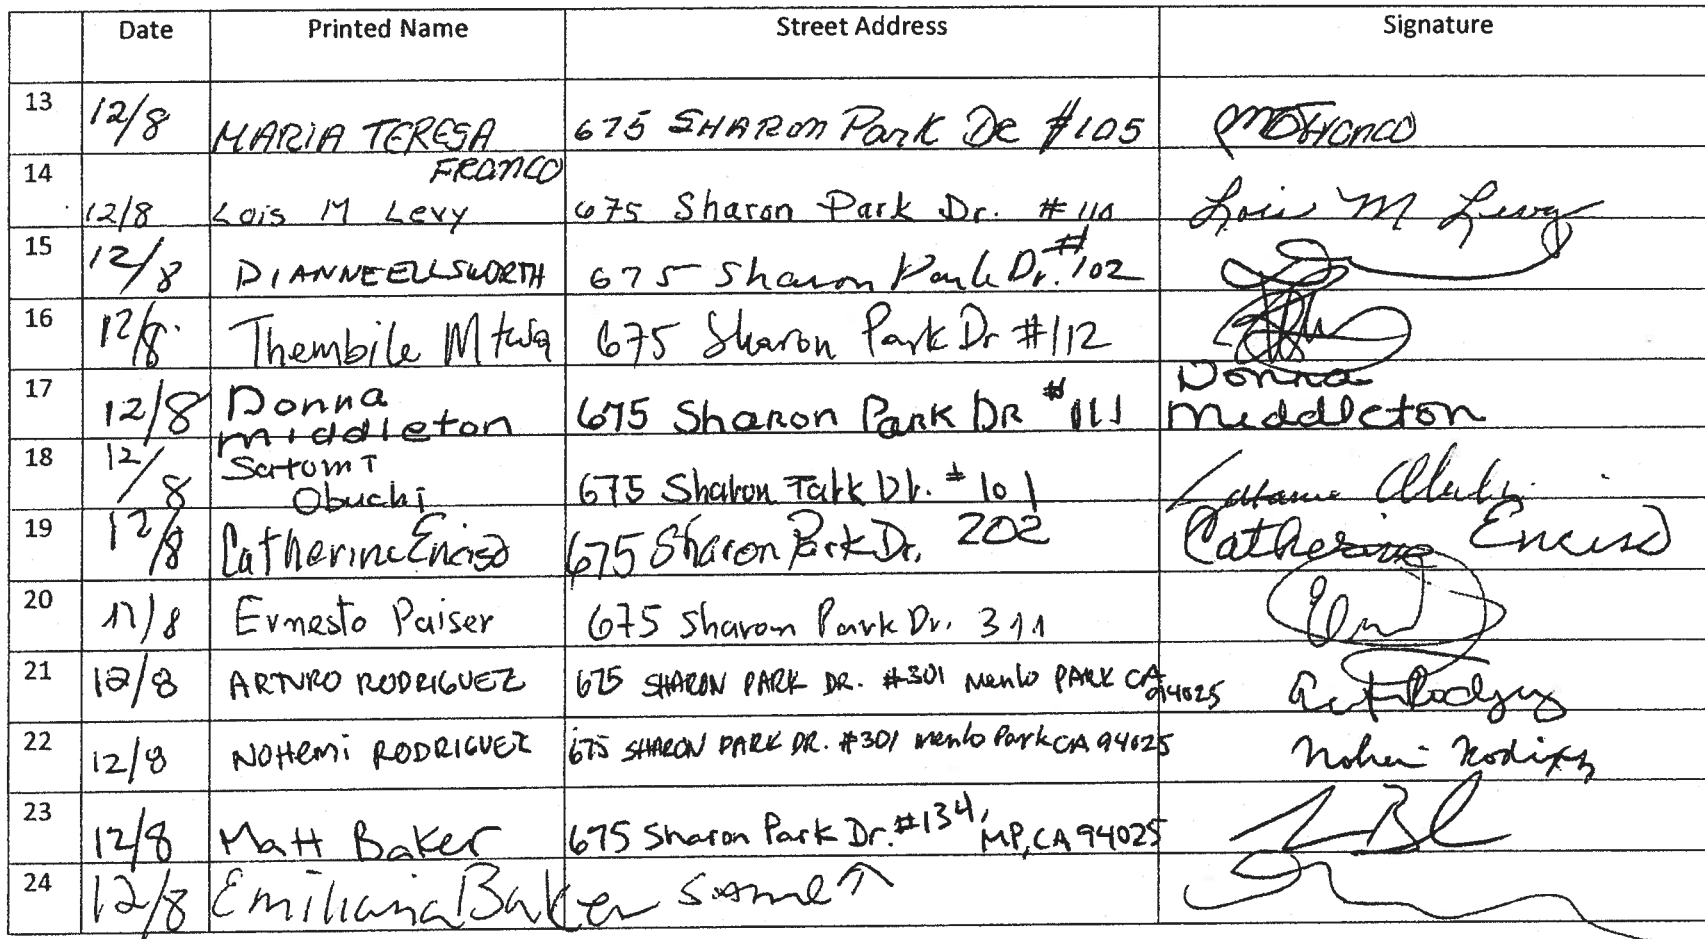 Date Printed Name Street Address Signature
13 12/8 MARIA TERESA FRANCO 675 SHARON Park DR #105
14 12/8 Lois M Levy 675 Sharon Park Dr. #110 Lois M Levy
15 12/8 DIANNE ELLSWORTH 675 Sharon Park Dr. #102
16 12/8 Thembile Mtwa 675 Sharon Park Dr #112
17 12/8 Donna Middleton 675 Sharon Park DR #111 Donna Middleton
18 12/8 Satomi Obuchi 675 Sharon Park Dr. #101
19 12/8 Catherine Enciso 675 Sharon Park Dr. 202 Catherine Enciso
20 12/8 Ernesto Paiser 675 Sharon Park Dr. 311
21 12/8 ARTURO RODRIGUEZ 675 SHARON PARK DR. #301 Menlo PARK CA 94025
22 12/8 NOHEMI RODRIGUEZ 675 SHARON PARK DR. #301 Menlo Park CA 94025
23 12/8 Matt Baker 675 Sharon Park Dr. #134, MP, CA 94025
24 12/8 Emiliana Baker Same ↑